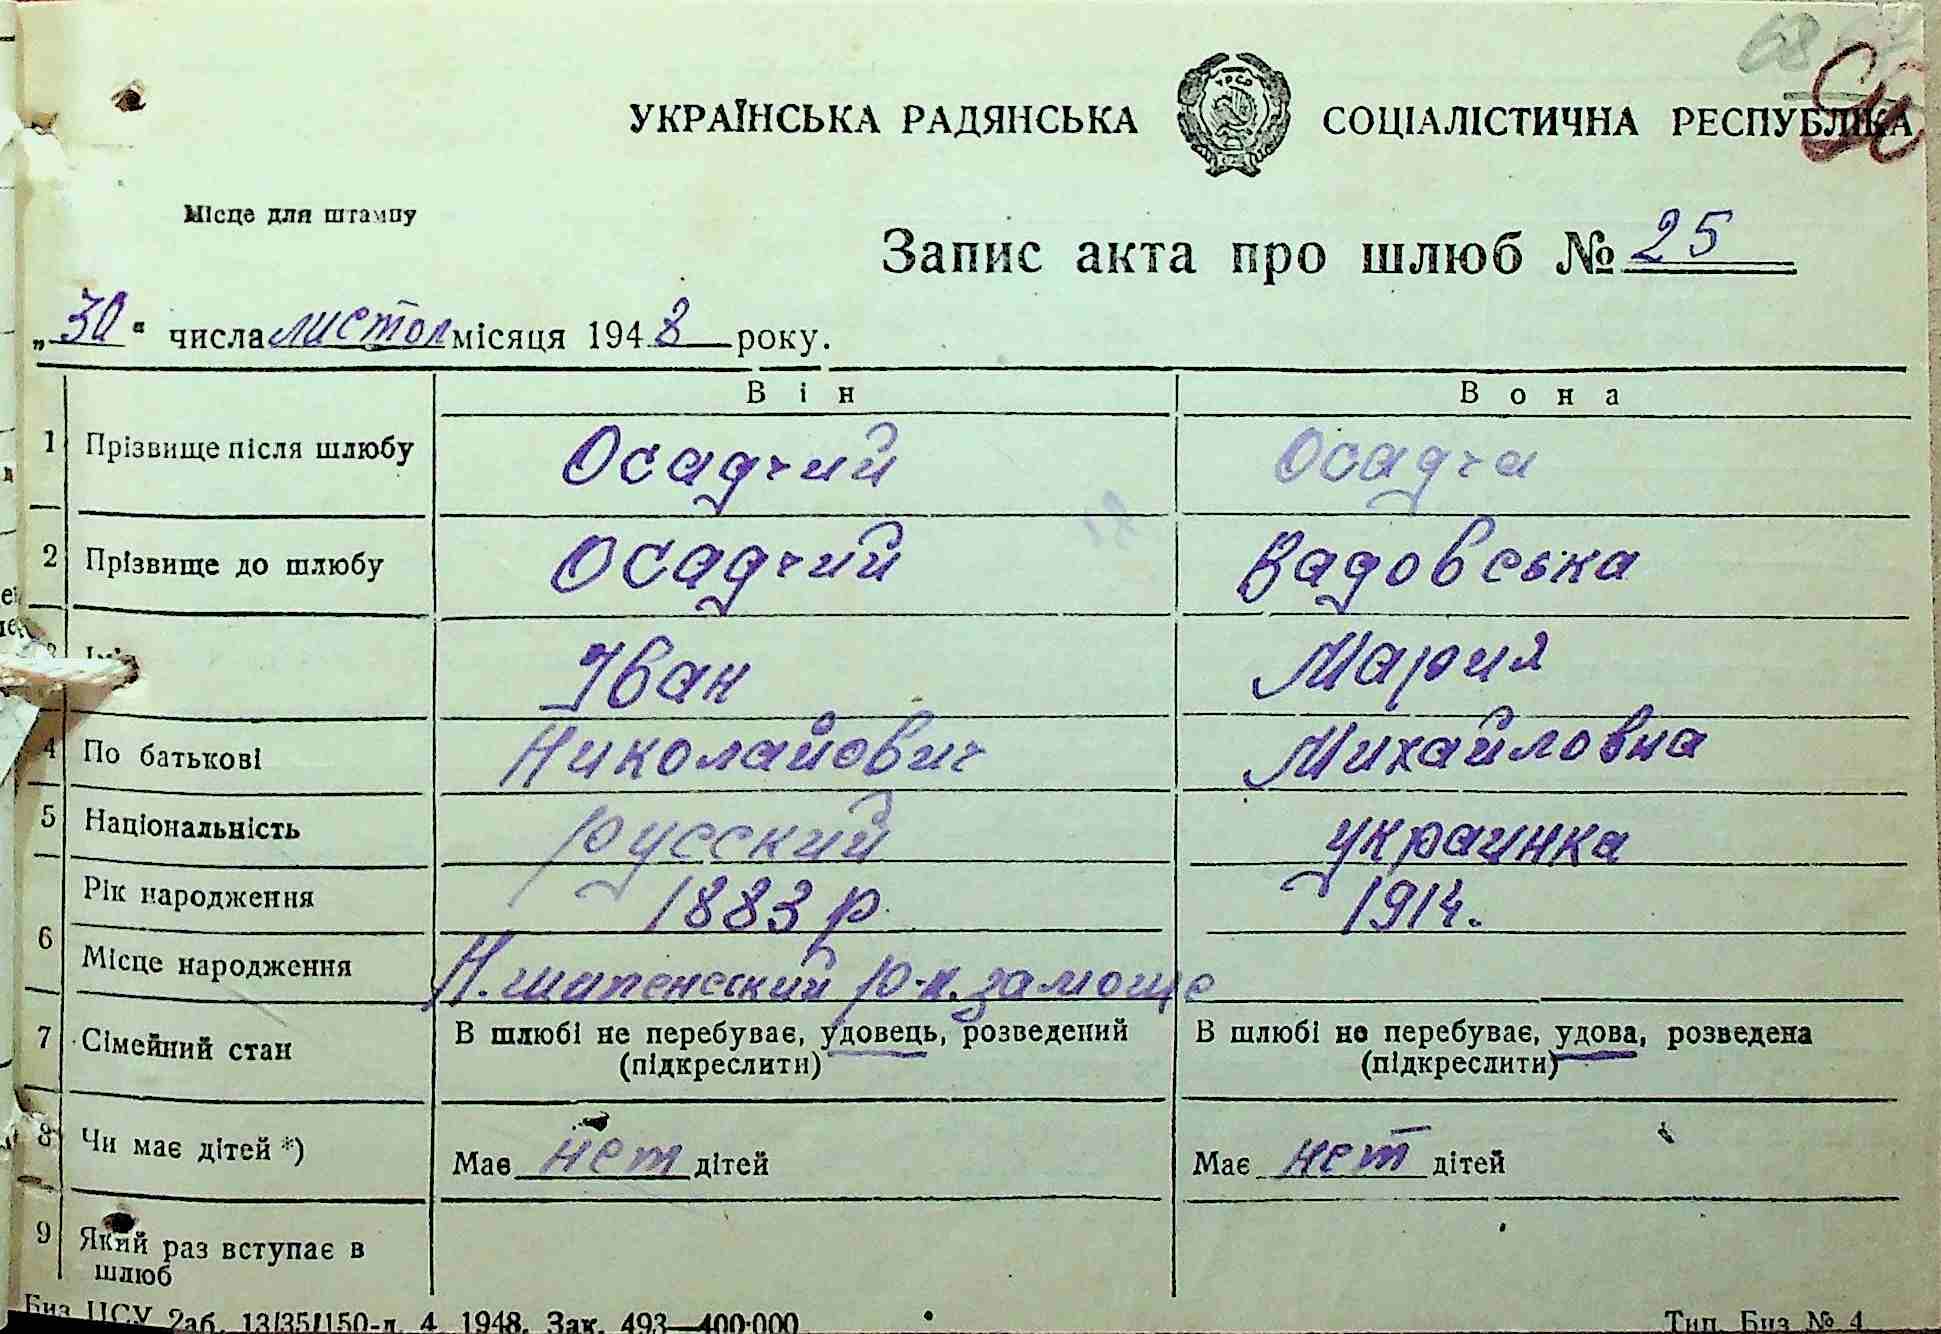 УКРАЇНСЬКА РАДЯНСЬКА СОЦІАЛІСТИЧНА РЕСПУБЛІКА
Місце для штампу
Запис акта про шлюб № 25
„30“ числа листоп місяця 1948 року.
Він Вона
1 Прізвище після шлюбу Осадчий Осадча
2 Прізвище до шлюбу Осадчий Вадовська
Іван Мария
4 По батькові Николайович Михайловна
5 Національність русский украинка
Рік народження 1883 р 1914.
6
Місце народження Н. шипенсский р-н. замоще
7 Сімейний стан В шлюбі не перебуває, удовець, розведений В шлюбі не перебуває, удова, розведена
(підкреслити) (підкреслити)
8 Чи має дітей *) Має нет дітей Має нет дітей
9 Який раз вступає в
шлюб
Биз ЦСУ 2аб. 13/35/150-д. 4. 1948. Зак. 493—400·000 Тип. Биз № 4